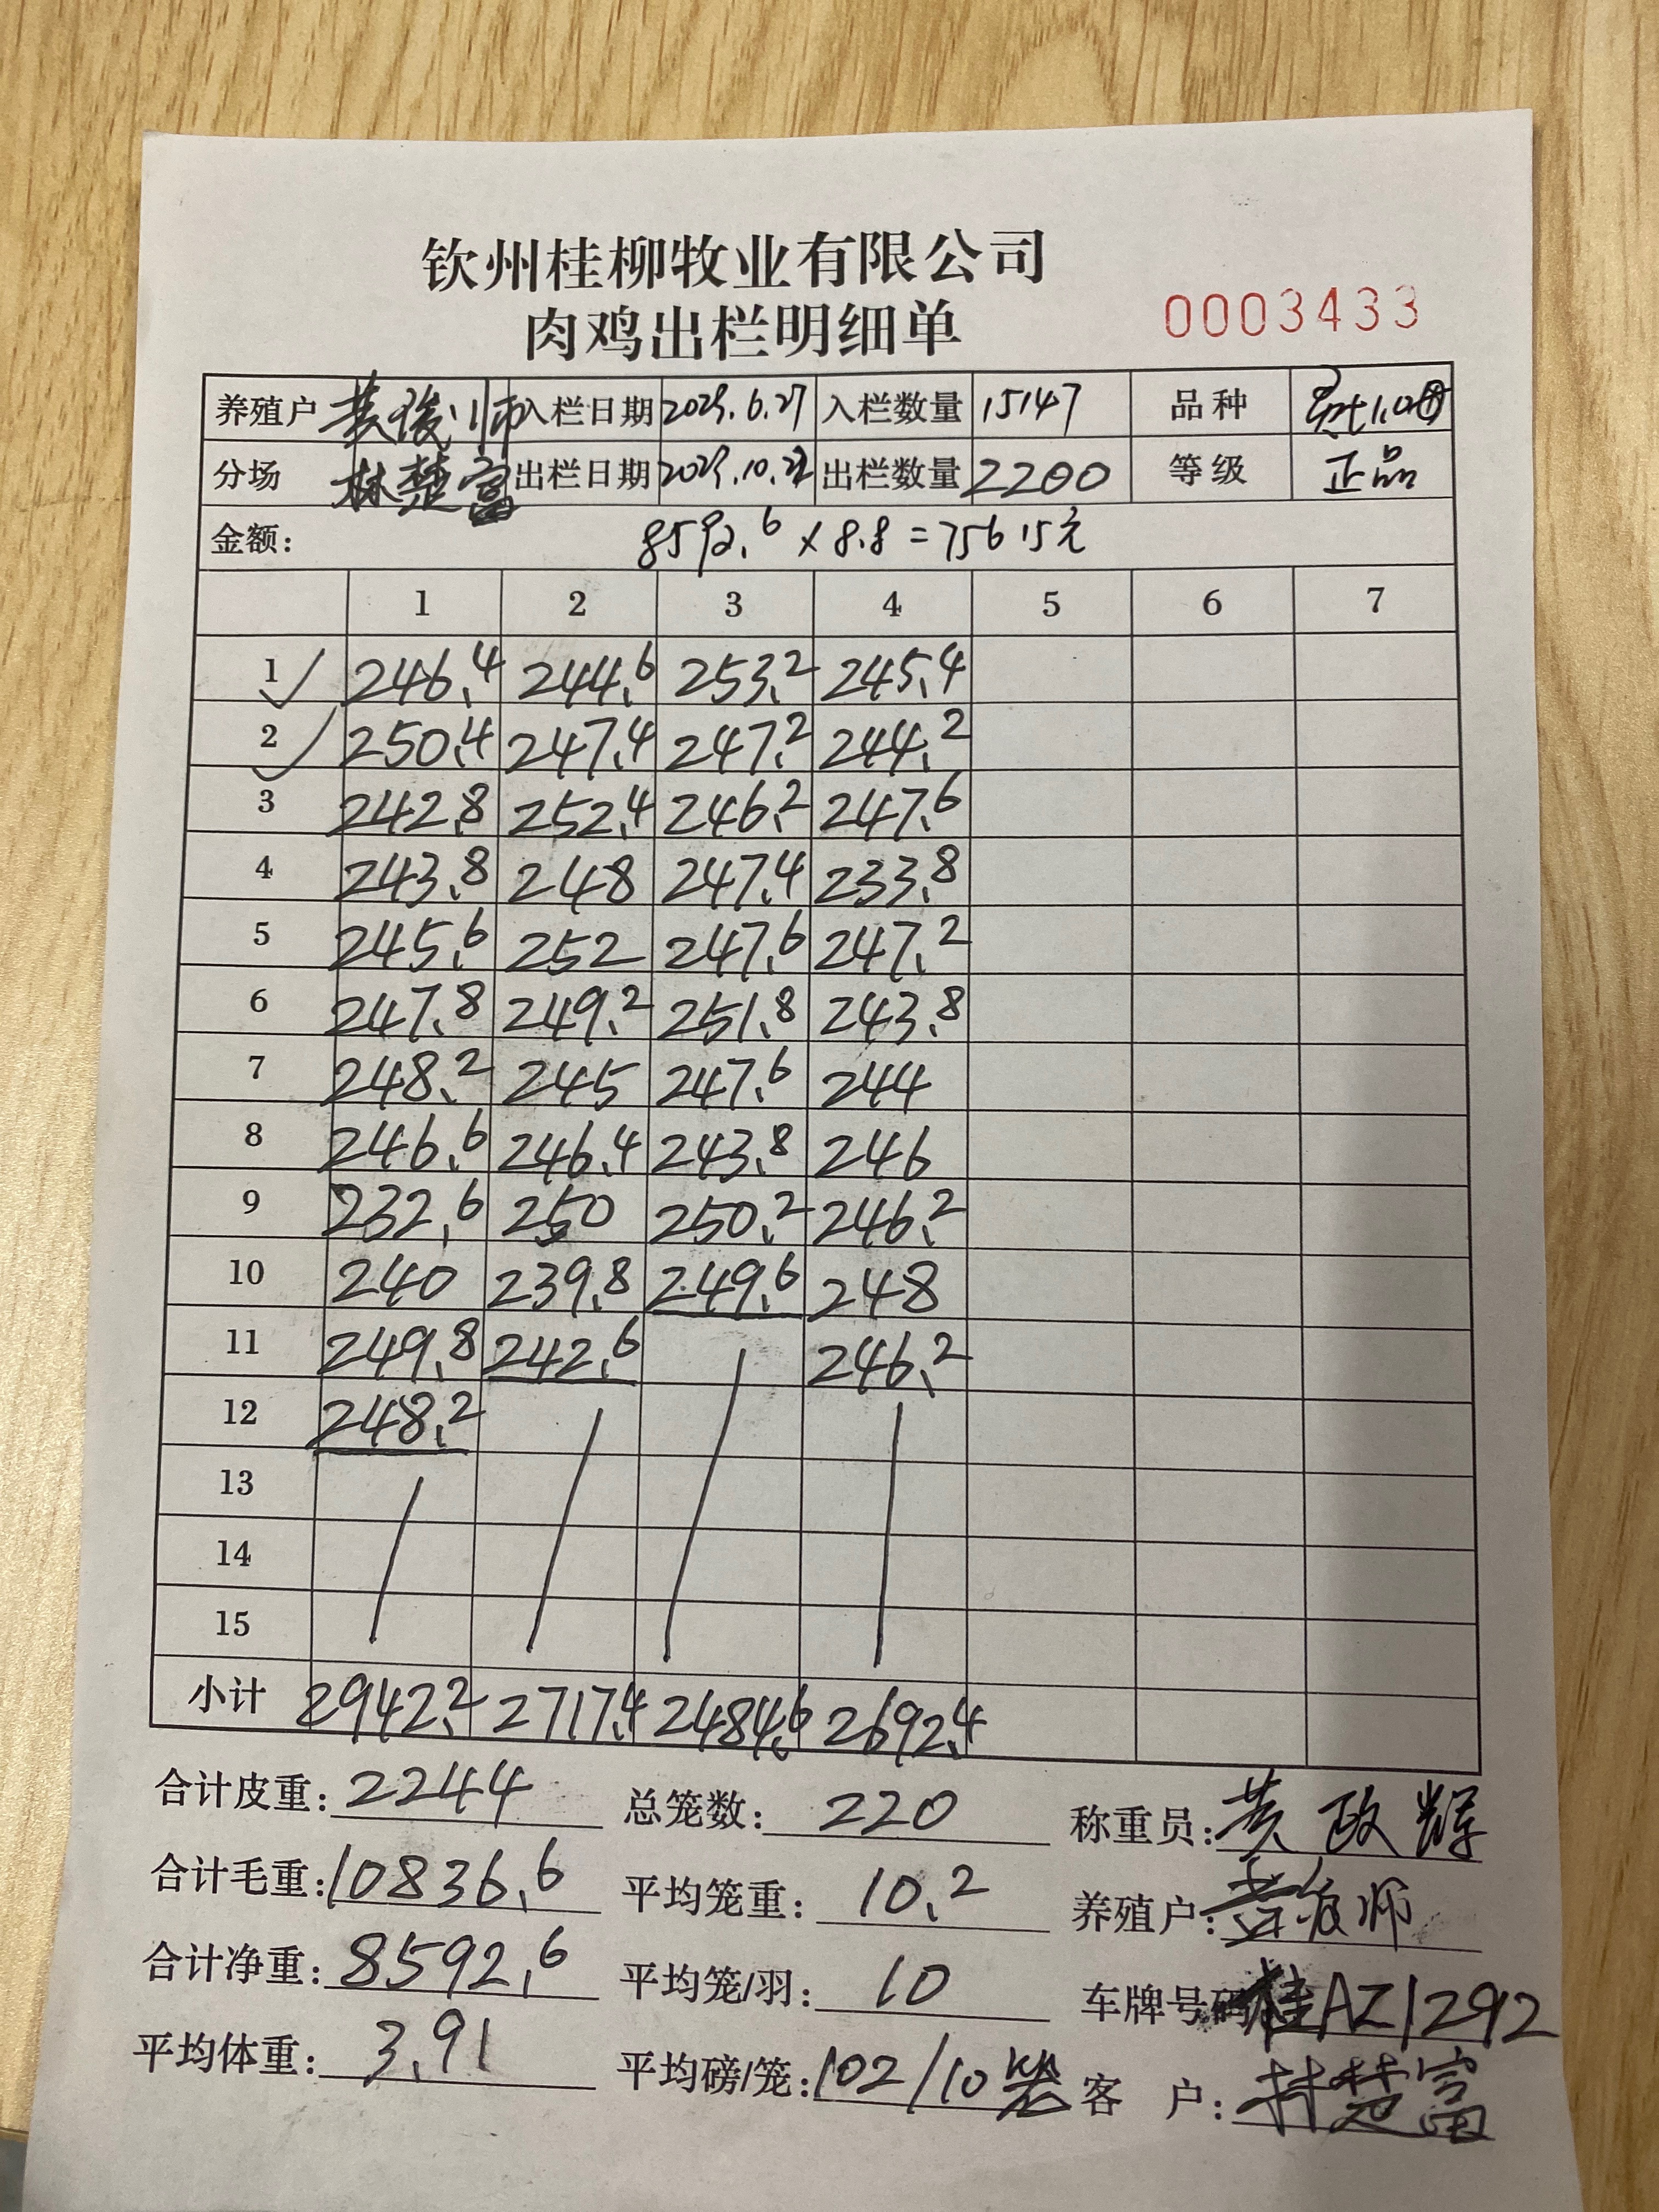 钦州桂柳牧业有限公司
肉鸡出栏明细单
0003433
养殖户 黄俊师 入栏日期 2023.6.27 入栏数量 15147 品种
分场 林楚富 出栏日期 2023.10.22 出栏数量 2200 等级 正品
金额: 8592.6 × 8.8 = 75615元
1 2 3 4 5 6 7
1 ✓ 246.4 244.6 253.2 245.4
2 ✓ 250.4 247.4 247.2 244.2
3 242.8 252.4 246.2 247.6
4 243.8 248 247.4 233.8
5 245.6 252 247.6 247.2
6 247.8 249.2 251.8 243.8
7 248.2 245 247.6 244
8 246.6 246.4 243.8 246
9 232.6 250 250.2 246.2
10 240 239.8 249.6 248
11 249.8 242.6 246.2
12 248.2
13
14
15
小计 2942.2 2717.4 2484.6 2692.4
合计皮重: 2244 总笼数: 220 称重员: 黄政辉
合计毛重: 10836.6 平均笼重: 10.2 养殖户: 黄俊师
合计净重: 8592.6 平均笼/羽: 10 车牌号码 桂AZ1292
平均体重: 3.91 平均磅/笼: 102/10 客 户: 林楚富